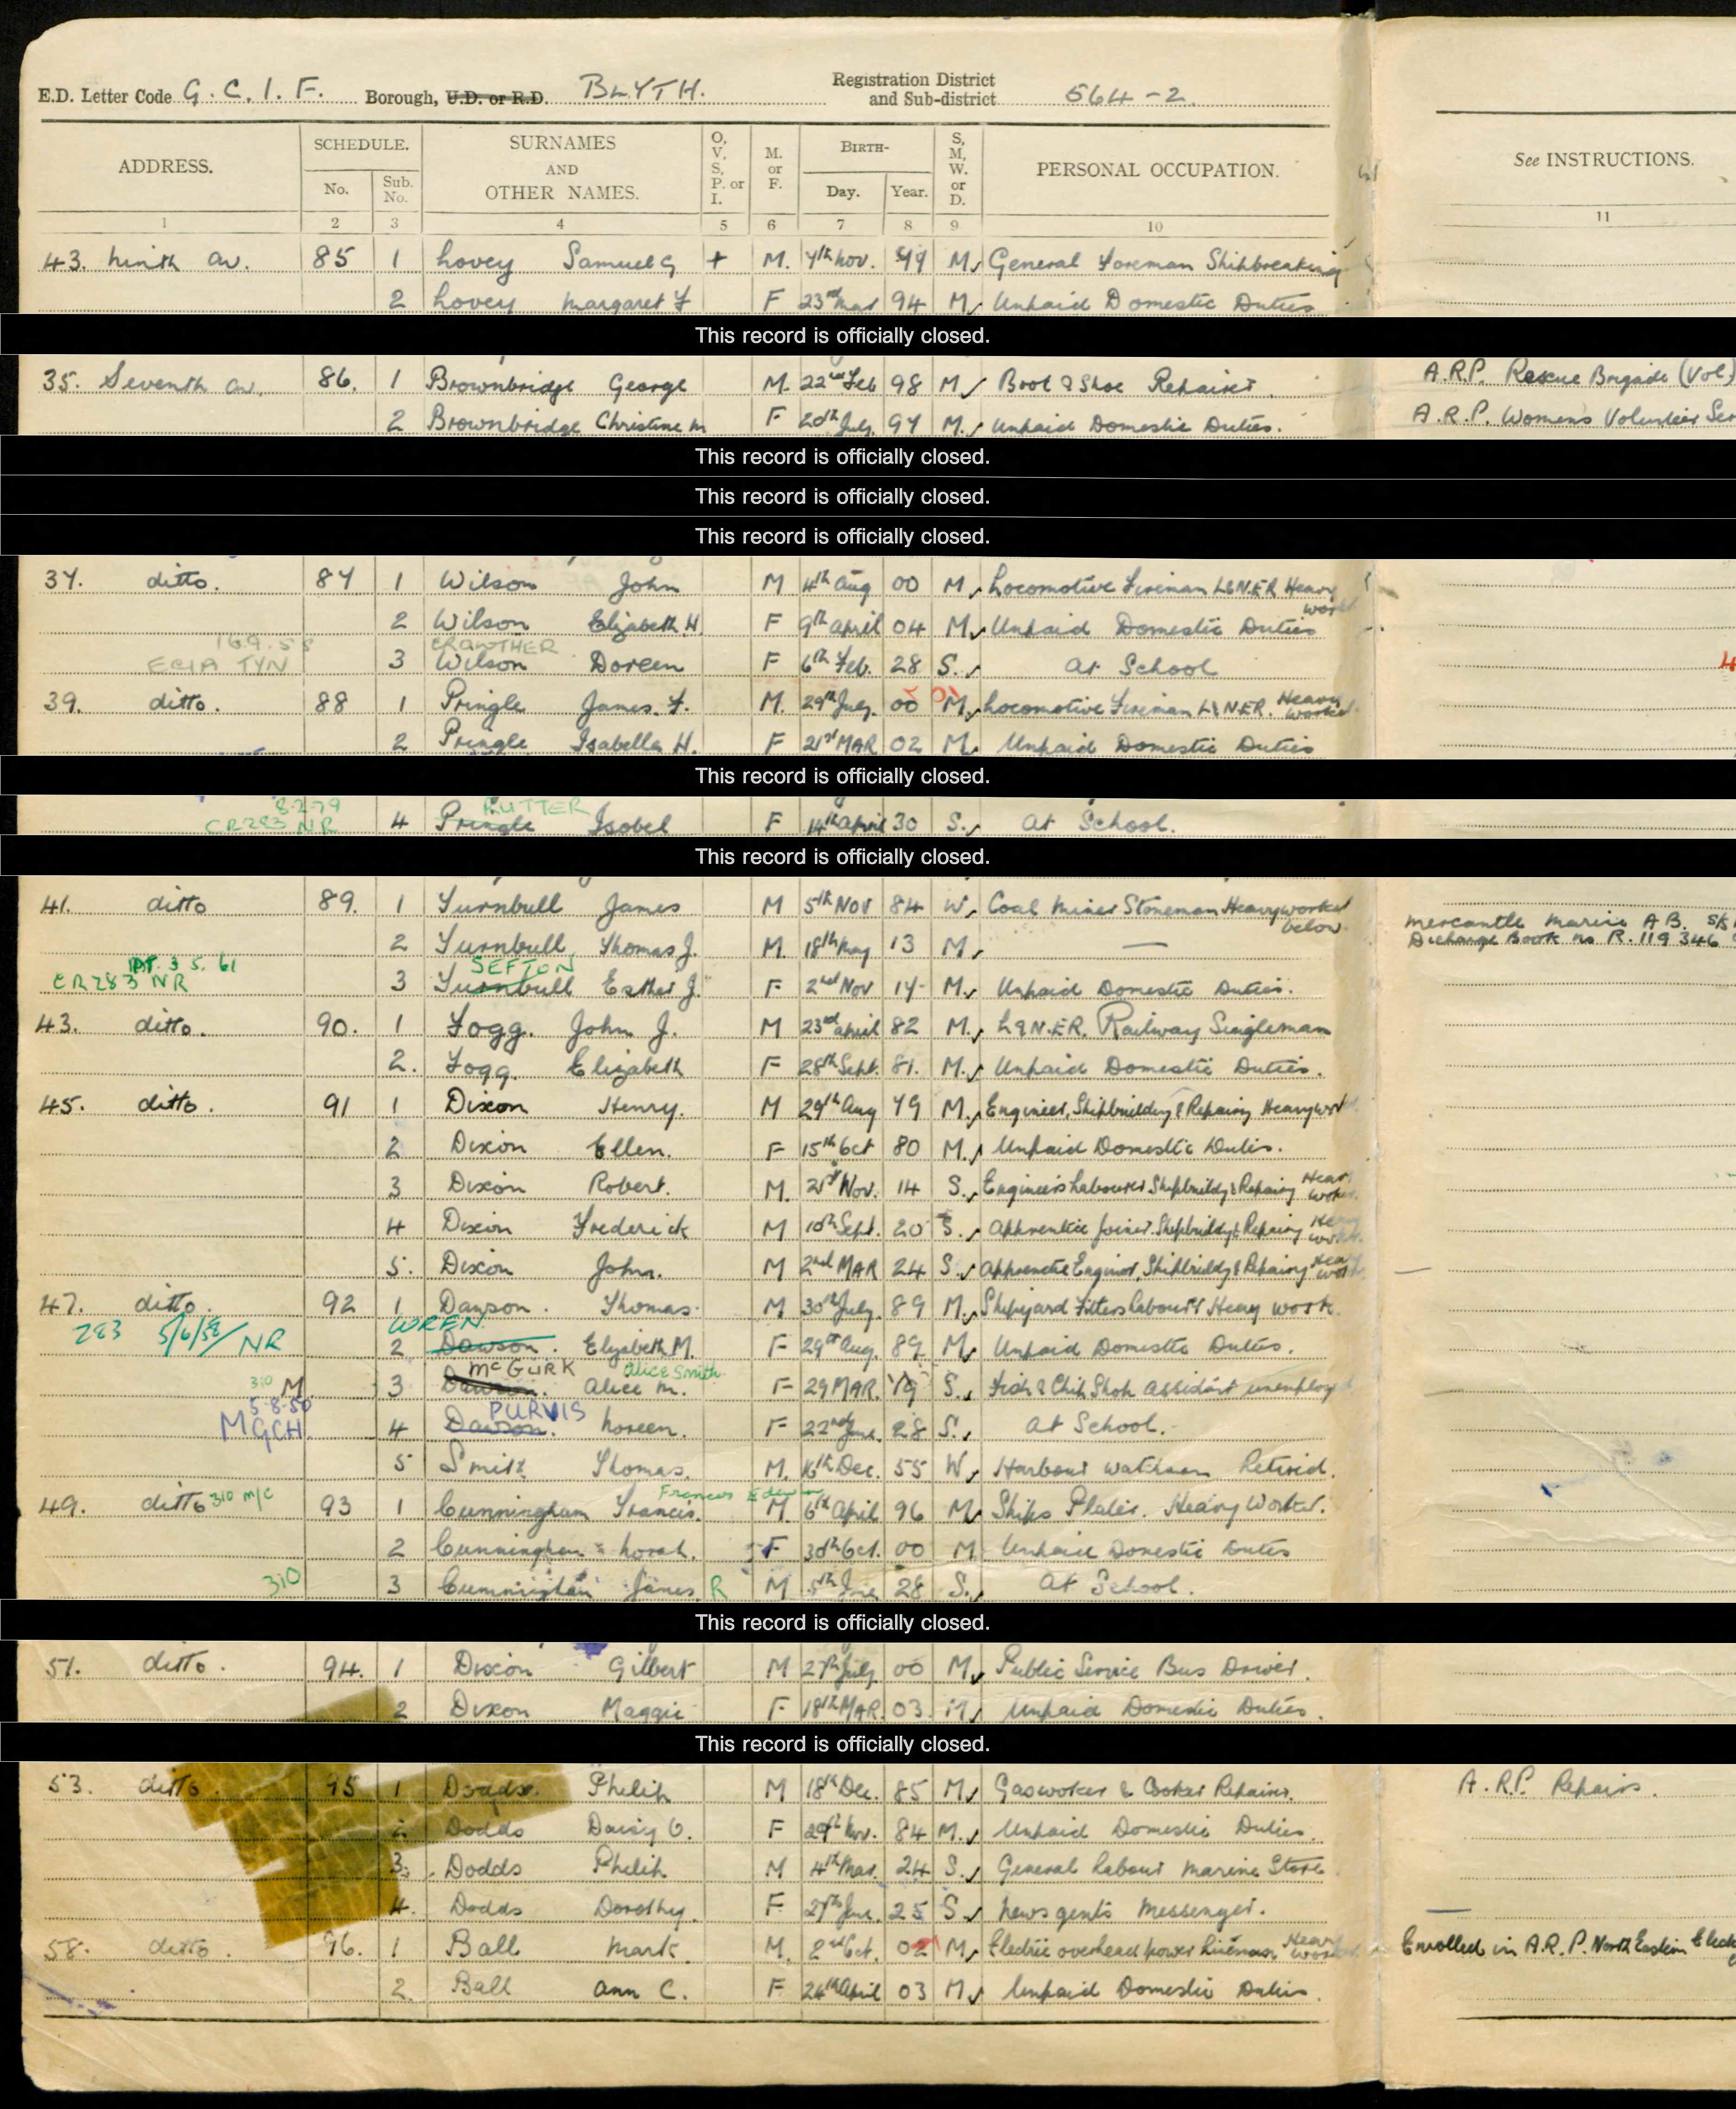 E.D. Letter Code G. C. I. F. Borough, U.D. or R.D. BLYTH. Registration District and Sub-district 564-2
ADDRESS. SCHEDULE. No. Sub. No. SURNAMES AND OTHER NAMES. O, V, S, P. or I. M. or F. BIRTH- Day. Year. S, M, W. or D. PERSONAL OCCUPATION. See INSTRUCTIONS.
1 2 3 4 5 6 7 8 9 10 11
43. Ninth Av. 85 1 Lovey Samuel G + M. 7th Nov. M General Foreman Shipbreaking
2 Lovey Margaret F F 23rd Mar 94 M Unpaid Domestic Duties
This record is officially closed.
35. Seventh Av. 86. 1 Brownbridge George M. 22nd Feb 98 M Boot & Shoe Repairer. A.R.P. Rescue Brigade (Vol)
2 Brownbridge Christine M F 20th July. 97 M. Unpaid Domestic Duties. A.R.P. Womens Volunteer Ser
This record is officially closed.
This record is officially closed.
This record is officially closed.
37. ditto. 87 1 Wilson John M 4th Aug 00 M Locomotive Fireman L&N.E.R Heavy work
2 Wilson Elizabeth H. F 9th April 04 M Unpaid Domestic Duties
16.9.58 CROWTHER
ECIA TYN 3 Wilson Doreen F 6th Feb. 28 S. At School
39. ditto. 88 1 Pringle James. F. M. 29th July. 00 M. Locomotive Fireman L&N.E.R. Heavy Worker
2 Pringle Isabella H. F 21st MAR 02 M. Unpaid Domestic Duties
This record is officially closed.
8.2.79 RUTTER
CR283 NR 4 Pringle Isobel F 14th April 30 S. At School.
This record is officially closed.
41. ditto 89. 1 Turnbull James M 5th NOV 84 W. Coal Miner Stoneman Heavy worker below. Mercantile Marine A.B. S/S
2 Turnbull Thomas J. M. 18th May 13 M. — Discharge Book no R. 119346
3.5.61 SEFTON
CR283 NR 3 Turnbull Esther J. F 2nd Nov 17 M. Unpaid Domestic Duties.
43. ditto. 90. 1 Fogg. John J. M 23rd April 82 M. L&N.E.R. Railway Singleman
2. Fogg. Elizabeth F 28th Sept. 81. M. Unpaid Domestic Duties.
45. ditto. 91 1 Dixon Henry. M 29th Aug 79 M. Engineer, Shipbuilding & Repairing Heavy work
2 Dixon Ellen. F 15th Oct 80 M. Unpaid Domestic Duties.
3 Dixon Robert. M. 21st Nov. 14 S. Engineers Labourer Shipbuildg & Repairing Heavy Worker.
4 Dixon Frederick M 10th Sept. 20 S. Apprentice Joiner. Shipbuildg & Repairing Heavy work.
5. Dixon John. M 2nd MAR 24 S. Apprentice Engineer, Shipbuildg & Repairing Heavy work
47. ditto. 92 1 Dawson. Thomas. M 30th July. 89 M. Shipyard Fitters Labourer Heavy work.
WREN
283 5/6/58 NR 2 Dawson. Elizabeth M. F 29th Aug. 89 M. Unpaid Domestic Duties.
McGURK Alice Smith
310 M 3 Dawson. Alice M. F 29 MAR. 19 S. Fish & Chip Shop Assistant unemployed
5-8-50 PURVIS
MGCH. 4 Dawson. Noreen. F 22nd June. 28 S. At School.
5 Smith Thomas. M. 16th Dec. 55 W. Harbour Watchman Retired.
Francis Edew
49. ditto 310 m/c 93 1 Cunningham Francis. M. 6th April 96 M. Ships Plater. Heavy Worker.
2 Cunningham Norah. F 30th Oct. 00 M Unpaid Domestic Duties
310 3 Cunningham James. R M 5th June 28 S. At School.
This record is officially closed.
51. ditto. 94. 1 Dixon Gilbert M 27th July 00 M. Public Service Bus Driver.
2 Dixon Maggie F 18th MAR. 03. M. Unpaid Domestic Duties.
This record is officially closed.
53. ditto. 95 1 Dodds. Philip M 18th Dec. 85 M. Gasworker & Cooker Repairer. A.R.P. Repairs.
2 Dodds Daisy O. F 29th Nov. 84 M. Unpaid Domestic Duties.
3. Dodds Philip M 4th Mar. 24 S. General Labour Marine Store
4. Dodds Dorothy. F 27th June. 25 S. Newsgents Messenger.
58. ditto. 96. 1 Ball Mark M. 2nd Oct. 02 M. Electric overhead power Linesman Heavy Worker Enrolled in A.R.P. North Eastern Elec
2. Ball Ann C. F 24th April 03 M. Unpaid Domestic Duties.